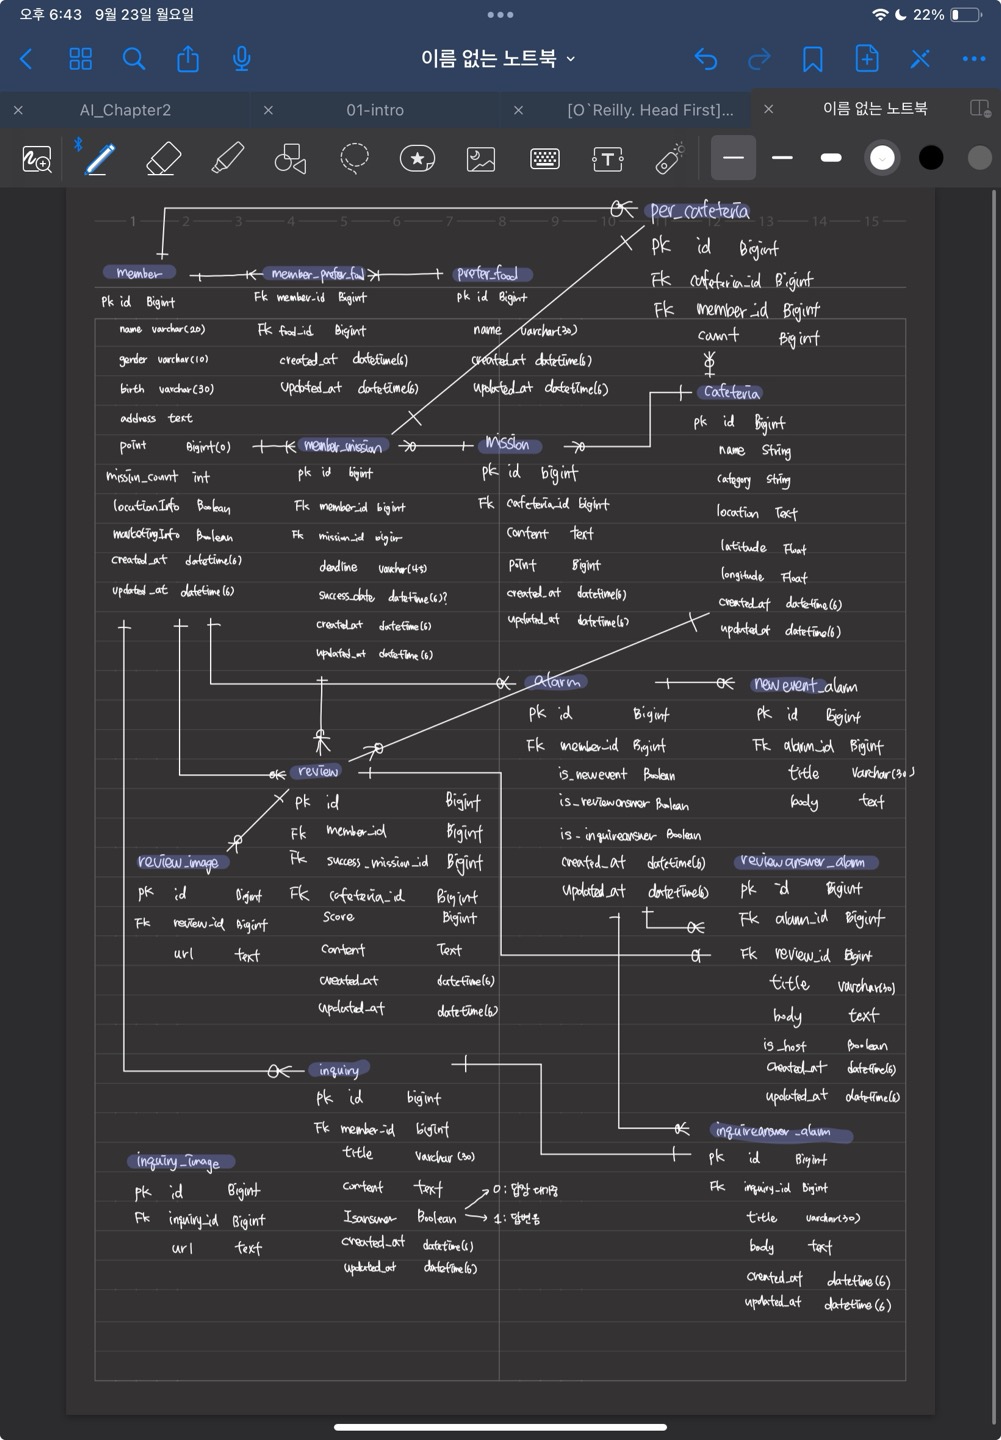 오후 6:43 9월 23일 월요일
22%
이름 없는 노트북
AI_Chapter2
01-intro
[O`Reilly. Head First]...
이름 없는 노트북
1 2 3 4 5 6 7 8 9 10 11 12 13 14 15
per_cafeteria
pk id Bigint
Fk cafeteria_id Bigint
Fk member_id Bigint
count Bigint
member
pk id Bigint
name varchar(20)
gender varchar(10)
birth varchar(30)
address text
point Bigint(0)
mission_count int
locationInfo Boolean
marketingInfo Boolean
created_at datetime(6)
updated_at datetime(6)
member_prefer_food
Fk member_id Bigint
Fk food_id Bigint
created_at datetime(6)
updated_at datetime(6)
prefer_food
pk id Bigint
name varchar(30)
created_at datetime(6)
updated_at datetime(6)
cafeteria
pk id Bigint
name String
category String
location Text
latitude Float
longitude Float
created_at datetime(6)
updated_at datetime(6)
member_mission
pk id bigint
Fk member_id bigint
Fk mission_id bigin
deadline varchar(45)
success_date datetime(6)?
created_at datetime(6)
updated_at datetime(6)
mission
pk id bigint
Fk cafeteria_id bigint
content text
point Bigint
created_at datetime(6)
updated_at datetime(6)
alarm
pk id Bigint
Fk member_id Bigint
is_newevent Boolean
is_reviewanswer Boolean
is_inquireanswer Boolean
created_at datetime(6)
updated_at datetime(6)
newevent_alarm
pk id Bigint
Fk alarm_id Bigint
title varchar(30)
body text
review
pk id Bigint
Fk member_id Bigint
Fk success_mission_id Bigint
Fk cafeteria_id Bigint
score Bigint
content Text
created_at datetime(6)
updated_at datetime(6)
review_image
pk id Bigint
Fk review_id Bigint
url text
reviewanswer_alarm
pk id Bigint
Fk alarm_id Bigint
Fk review_id Bigint
title varchar(30)
body text
is_host Boolean
created_at datetime(6)
updated_at datetime(6)
inquiry
pk id bigint
Fk member_id bigint
title varchar(30)
content text
Isanswer Boolean
0: 답장 대기중
1: 답변옴
created_at datetime(6)
updated_at datetime(6)
inquiry_image
pk id Bigint
Fk inquiry_id Bigint
url text
inquireanswer_alarm
pk id Bigint
Fk inquiry_id Bigint
title varchar(30)
body text
created_at datetime(6)
updated_at datetime(6)